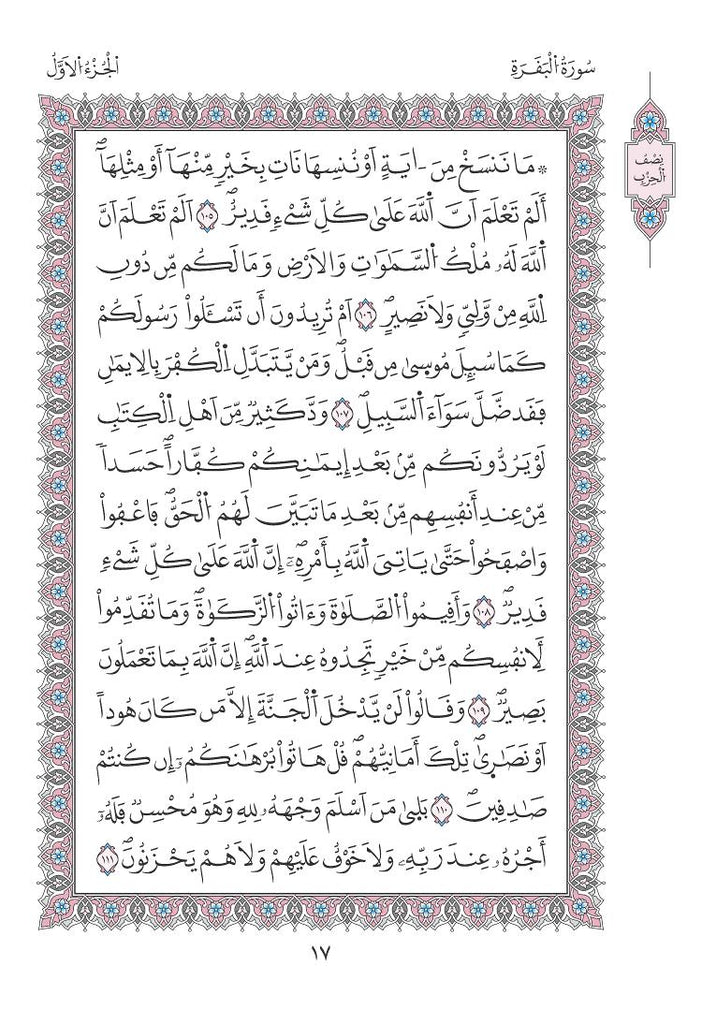 سُورَةُ اُ۬لْبَقَرَةِ
اَ۬لْجُزْءُ اُ۬لَاوَّلُ
نِصْفُ
اُ۬لْحِزْبِ
۞ مَا نَنسَخْ مِنَ ـايَةٍ اَوْ نُنسِهَا نَاتِ بِخَيْرٍ مِّنْهَآ أَوْ مِثْلِهَآۖ
أَلَمْ تَعْلَمَ اَنَّ اَ۬للَّهَ عَلَىٰ كُلِّ شَےْءٖ قَدِيرٌۖ ١٠٥ اَلَمْ تَعْلَمَ اَنَّ
اَ۬للَّهَ لَهُۥ مُلْكُ اُ۬لسَّمَٰوَٰتِ وَالَارْضِ وَمَا لَكُم مِّن دُونِ
اِ۬للَّهِ مِنْ وَّلِيّٖ وَلَا نَصِيرٍۖ ١٠٦ اَمْ تُرِيدُونَ أَن تَسْـَٔلُواْ رَسُولَكُمْ
كَمَا سُئِلَ مُوسَىٰ مِن قَبْلُۖ وَمَنْ يَّتَبَدَّلِ اِ۬لْكُفْرَ بِالِايمَٰنِ
فَقَد ضَّلَّ سَوَآءَ اَ۬لسَّبِيلِۖ ١٠٧ وَدَّ كَثِيرٌ مِّنَ اَهْلِ اِ۬لْكِتَٰبِ
لَوْ يَرُدُّونَكُم مِّنۢ بَعْدِ إِيمَٰنِكُمْ كُفَّاراًۖ حَسَداٗ
مِّنْ عِندِ أَنفُسِهِم مِّنۢ بَعْدِ مَا تَبَيَّنَ لَهُمُ اُ۬لْحَقُّۖ فَاعْفُواْ
وَاصْفَحُواْ حَتَّىٰ يَاتِيَ اَ۬للَّهُ بِأَمْرِهِۦٓۖ إِنَّ اَ۬للَّهَ عَلَىٰ كُلِّ شَےْءٖ
قَدِيرٌۖ ١٠٨ وَأَقِيمُواْ اُ۬لصَّلَوٰةَ وَءَاتُواْ اُ۬لزَّكَوٰةَۖ وَمَا تُقَدِّمُواْ
لِأَنفُسِكُم مِّنْ خَيْرٖ تَجِدُوهُ عِندَ اَ۬للَّهِۖ إِنَّ اَ۬للَّهَ بِمَا تَعْمَلُونَ
بَصِيرٌۖ ١٠٩ وَقَالُواْ لَنْ يَّدْخُلَ اَ۬لْجَنَّةَ إِلَّا مَن كَانَ هُوداً
اَوْ نَصَٰرَىٰۖ تِلْكَ أَمَانِيُّهُمْۖ قُلْ هَاتُواْ بُرْهَٰنَكُمُۥٓ إِن كُنتُمْ
صَٰدِقِينَۖ ١١٠ بَلَىٰ مَنَ اَسْلَمَ وَجْهَهُۥ لِلهِ وَهُوَ مُحْسِنٞ فَلَهُۥٓ
أَجْرُهُۥ عِندَ رَبِّهِۦ وَلَا خَوْفٌ عَلَيْهِمْ وَلَا هُمْ يَحْزَنُونَۖ ١١١
١٧